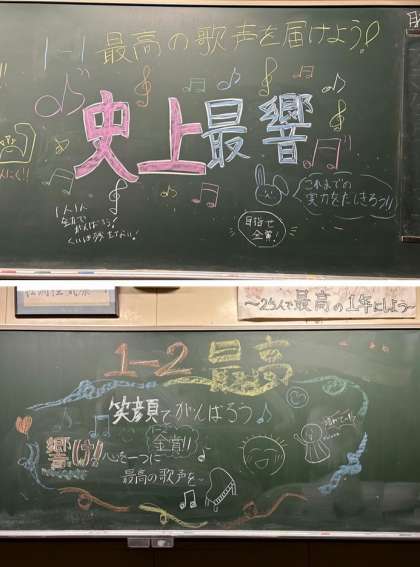 1-1 最高の歌声を届けよう!
史上最響
これまでの
実力をだしきろう!!
1人1人
全力で
がんばろう!
くいは残さない!
目指せ
金賞!
〜25人で最高の1年にしよう〜
1-2 最高
笑顔でがんばろう
金賞!!
響け!!
心を一つに
最高の歌声を